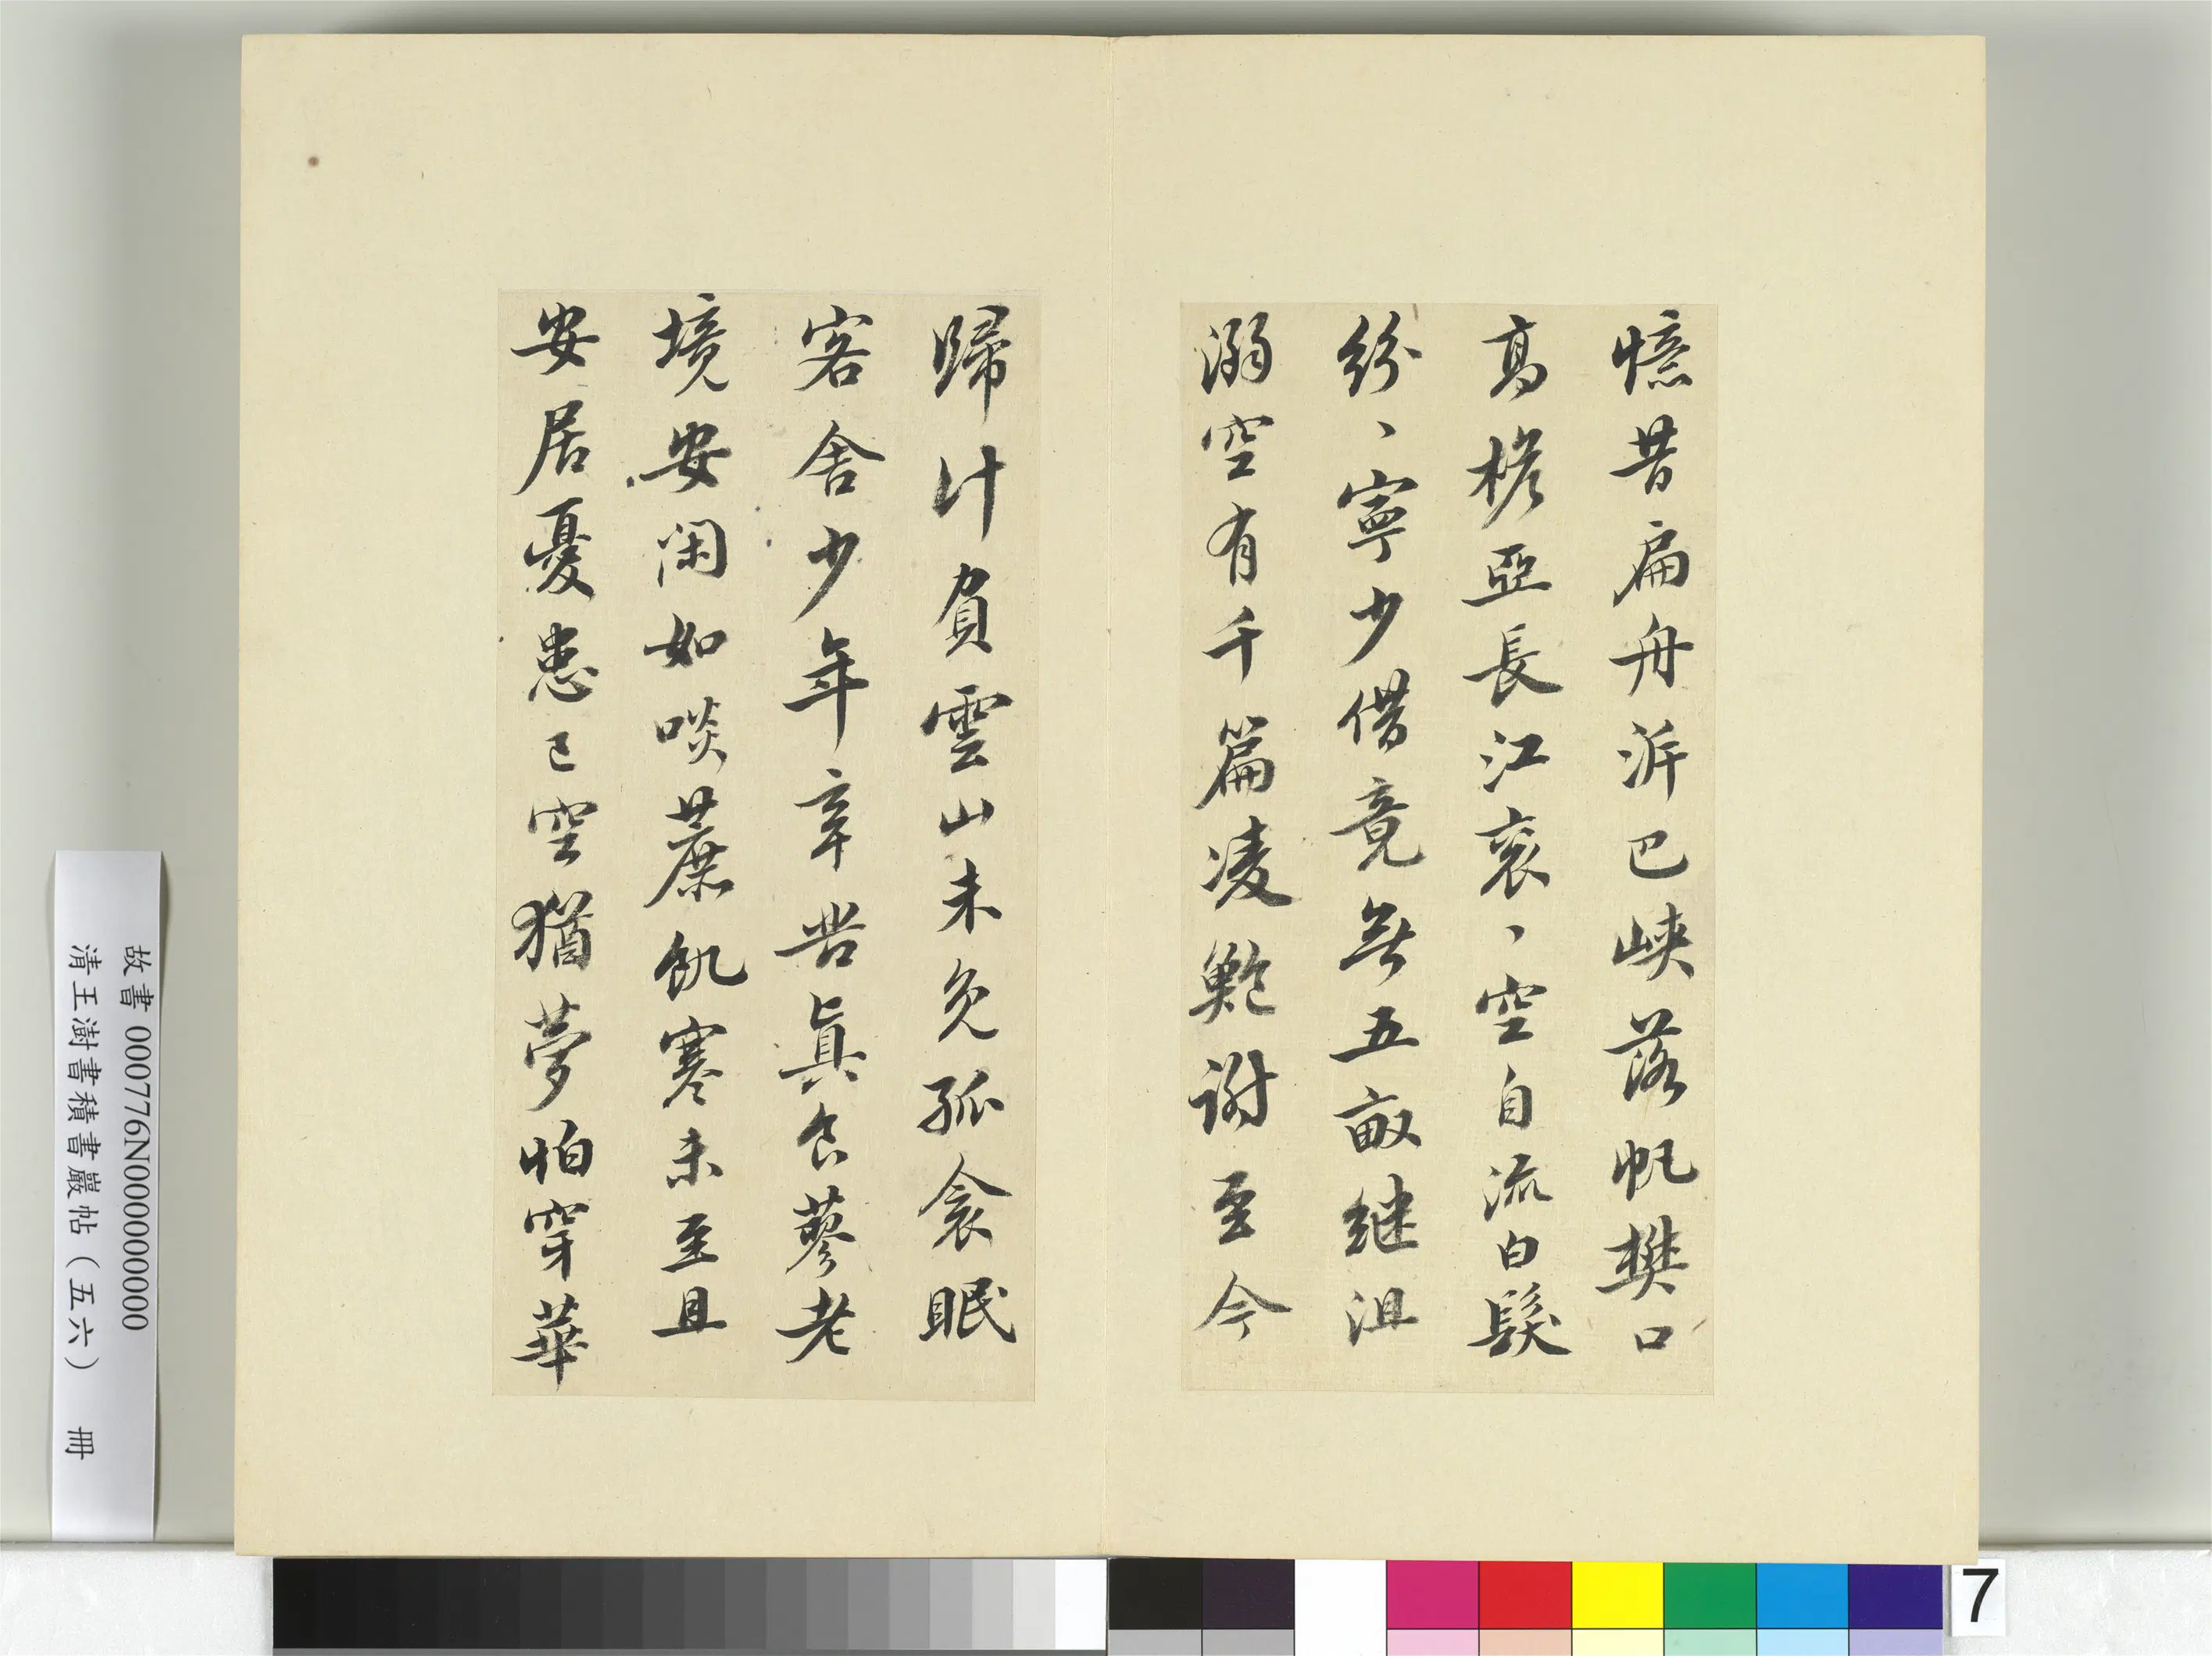 憶昔扁舟泝巴峽落帆樊口
高桅亞長江衮、空自流白髮
紛、寧少借竟無五畝繼沮
溺空有千篇凌鮑謝至今
歸計負雲山未免孤衾眠
客舍少年辛苦真食蓼老
境安閑如啖蔗飢寒未至且
安居憂患已空猶夢怕穿華
故書 000776N000000000
清王澍書積書巖帖（五六） 冊
7